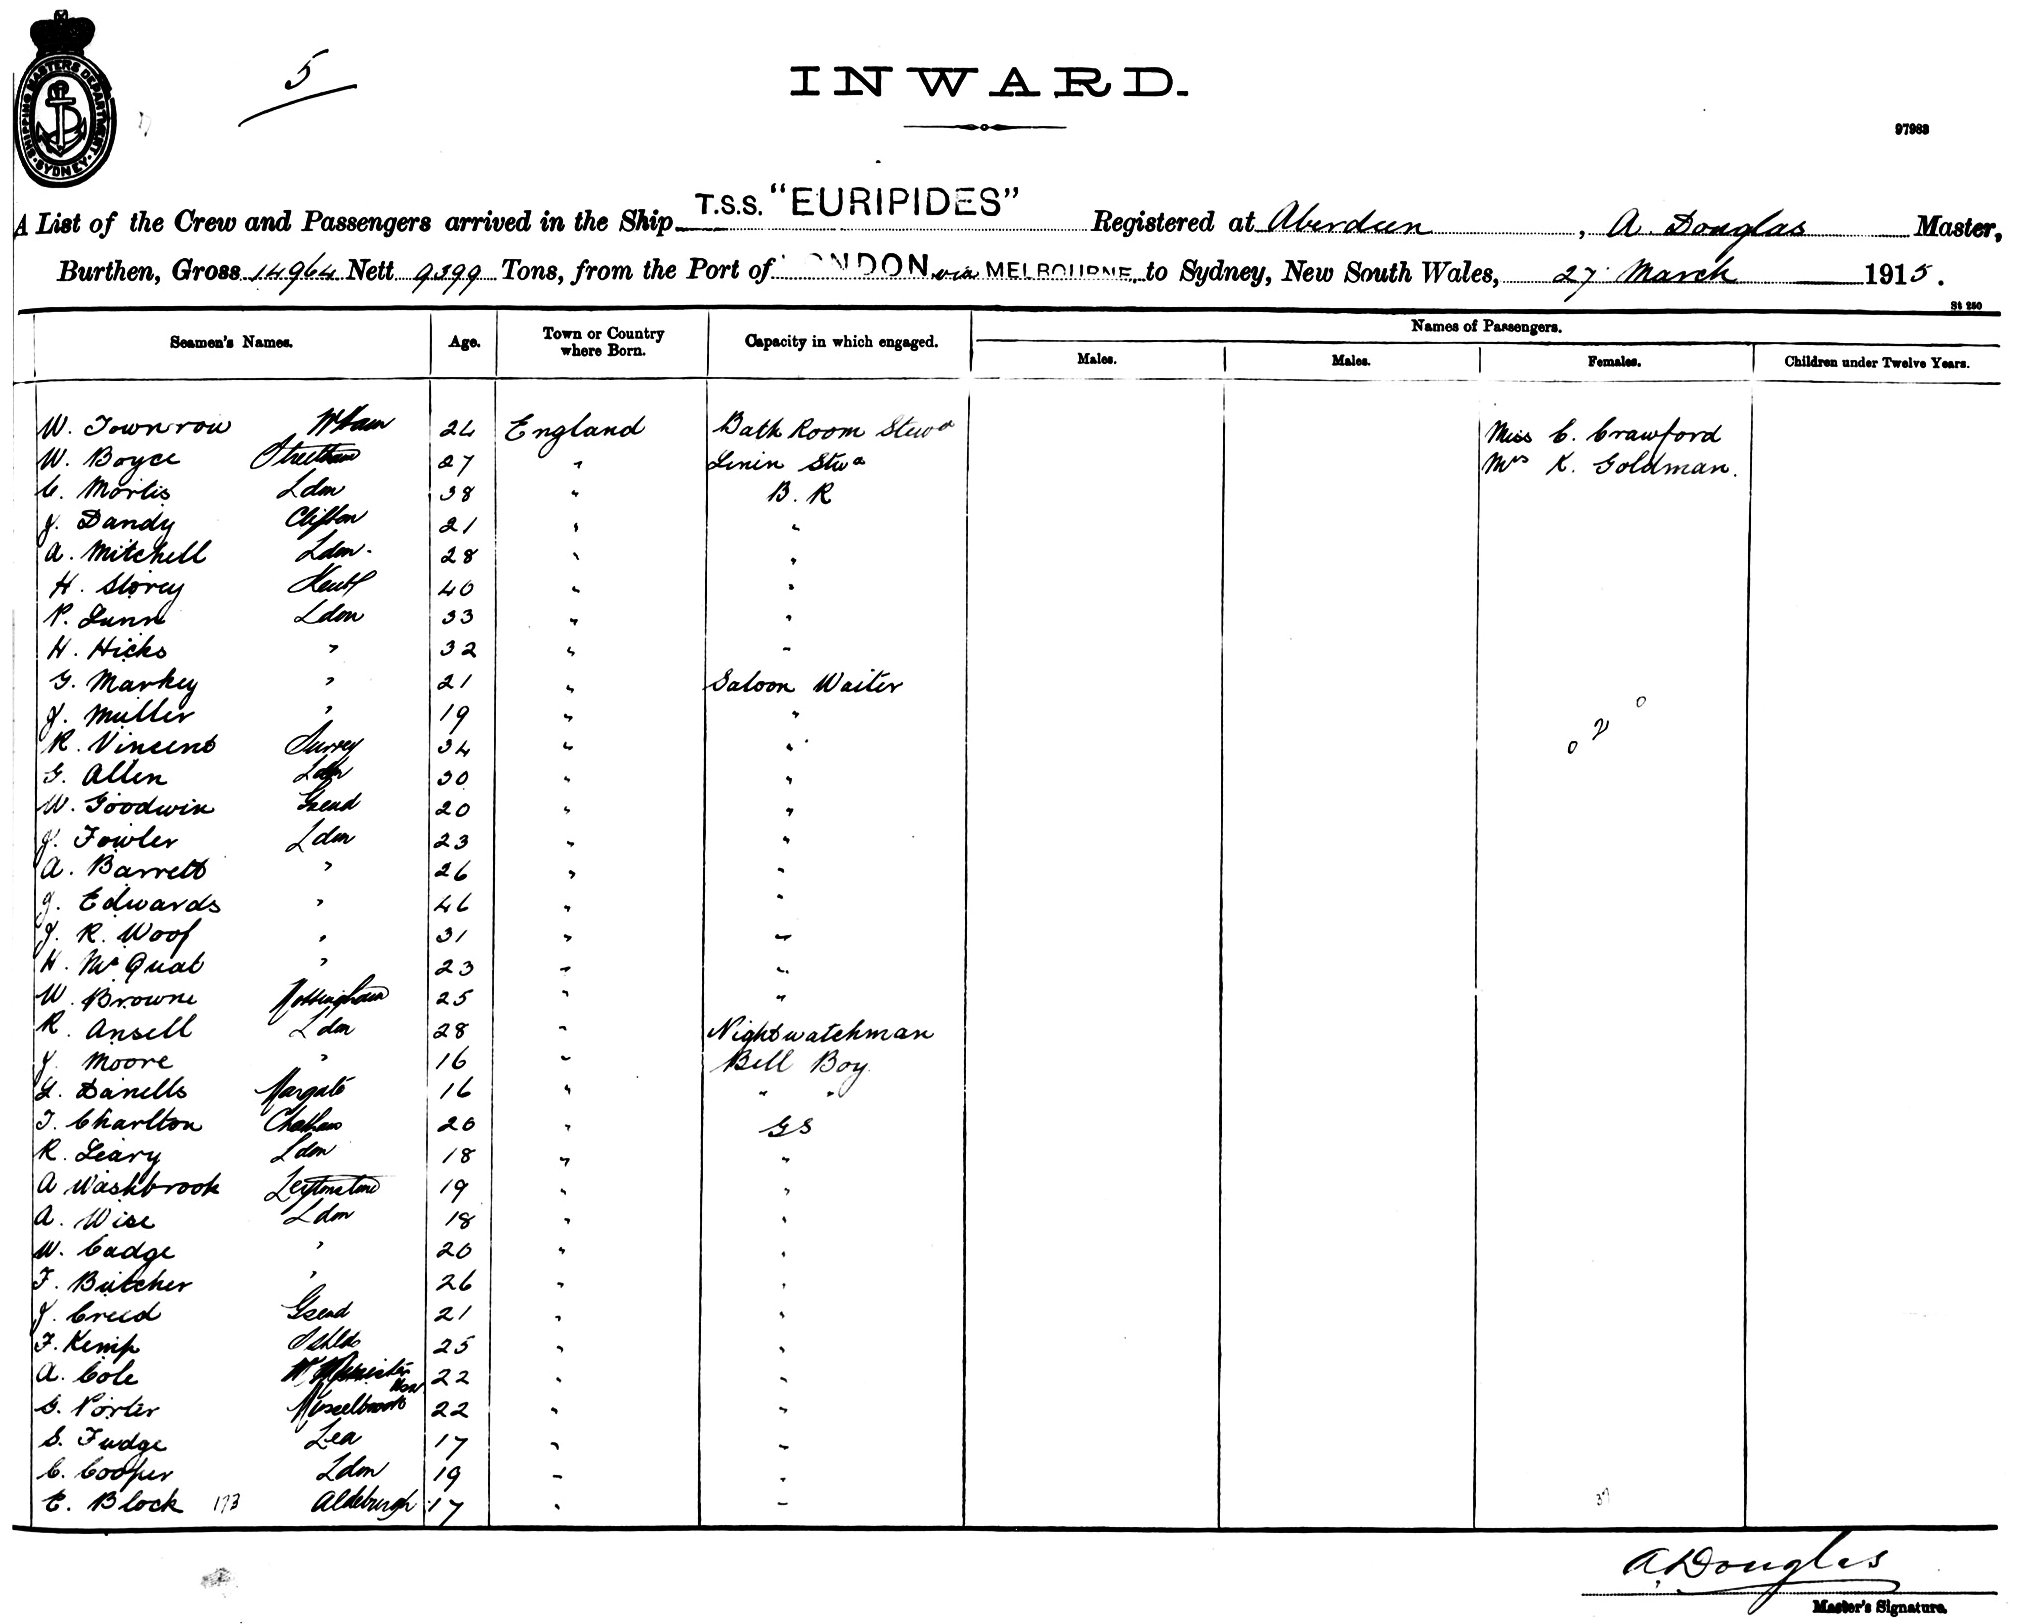 5
INWARD.
97983
SHIPPING MASTERS DEPARTMENT SYDNEY
A List of the Crew and Passengers arrived in the Ship T.S.S. "EURIPIDES" Registered at Aberdeen, A. Douglas Master,
Burthen, Gross 14964 Nett 9399 Tons, from the Port of LONDON via MELBOURNE, to Sydney, New South Wales, 27 March 1915.
St 250
Seamen's Names. Age. Town or Country where Born. Capacity in which engaged. Names of Passengers.
Males. Males. Females. Children under Twelve Years.
W. Townrow W Ham 24 England Bath Room Stewd Miss C. Crawford
W. Boyce Streatham 27 " Linin Stwd Mrs K. Goldman.
C. Morlis Ldon 38 " B. R
J. Dandy Clifton 21 " "
A. Mitchell Ldon. 28 " "
H. Storey Kent 40 " "
P. Lunn Ldon 33 " "
H. Hicks " 32 " "
G. Markey " 21 " Saloon Waiter
J. Muller " 19 " "
R. Vincent Surrey 34 " "
G. Allen Ldon 30 " "
W. Goodwin Gsend 20 " "
J. Fowler Ldon 23 " "
A. Barrett " 26 " "
J. Edwards " 46 " "
J. R. Woof " 31 " "
H. McQuat " 23 " "
W. Browne Nottingham 25 " "
R. Ansell Ldon 28 " Nightwatchman
J. Moore " 16 " Bell Boy
G. Daniells Margate 16 " " "
T. Charlton Chatham 20 " GS
R. Leary Ldon 18 " "
A Washbrook Leytonstone 19 " "
A. Wise Ldon 18 " "
W. Cadge " 20 " "
F. Butcher " 26 " "
J. Creed Gsend 21 " "
F. Kemp 25 " "
A. Cole 22 " "
G. Porter 22 " "
S. Fudge Lea 17 " "
C. Cooper Ldon 19 " "
E. Block 173 Aldeburgh 17 " "
A. Douglas
Master's Signature.